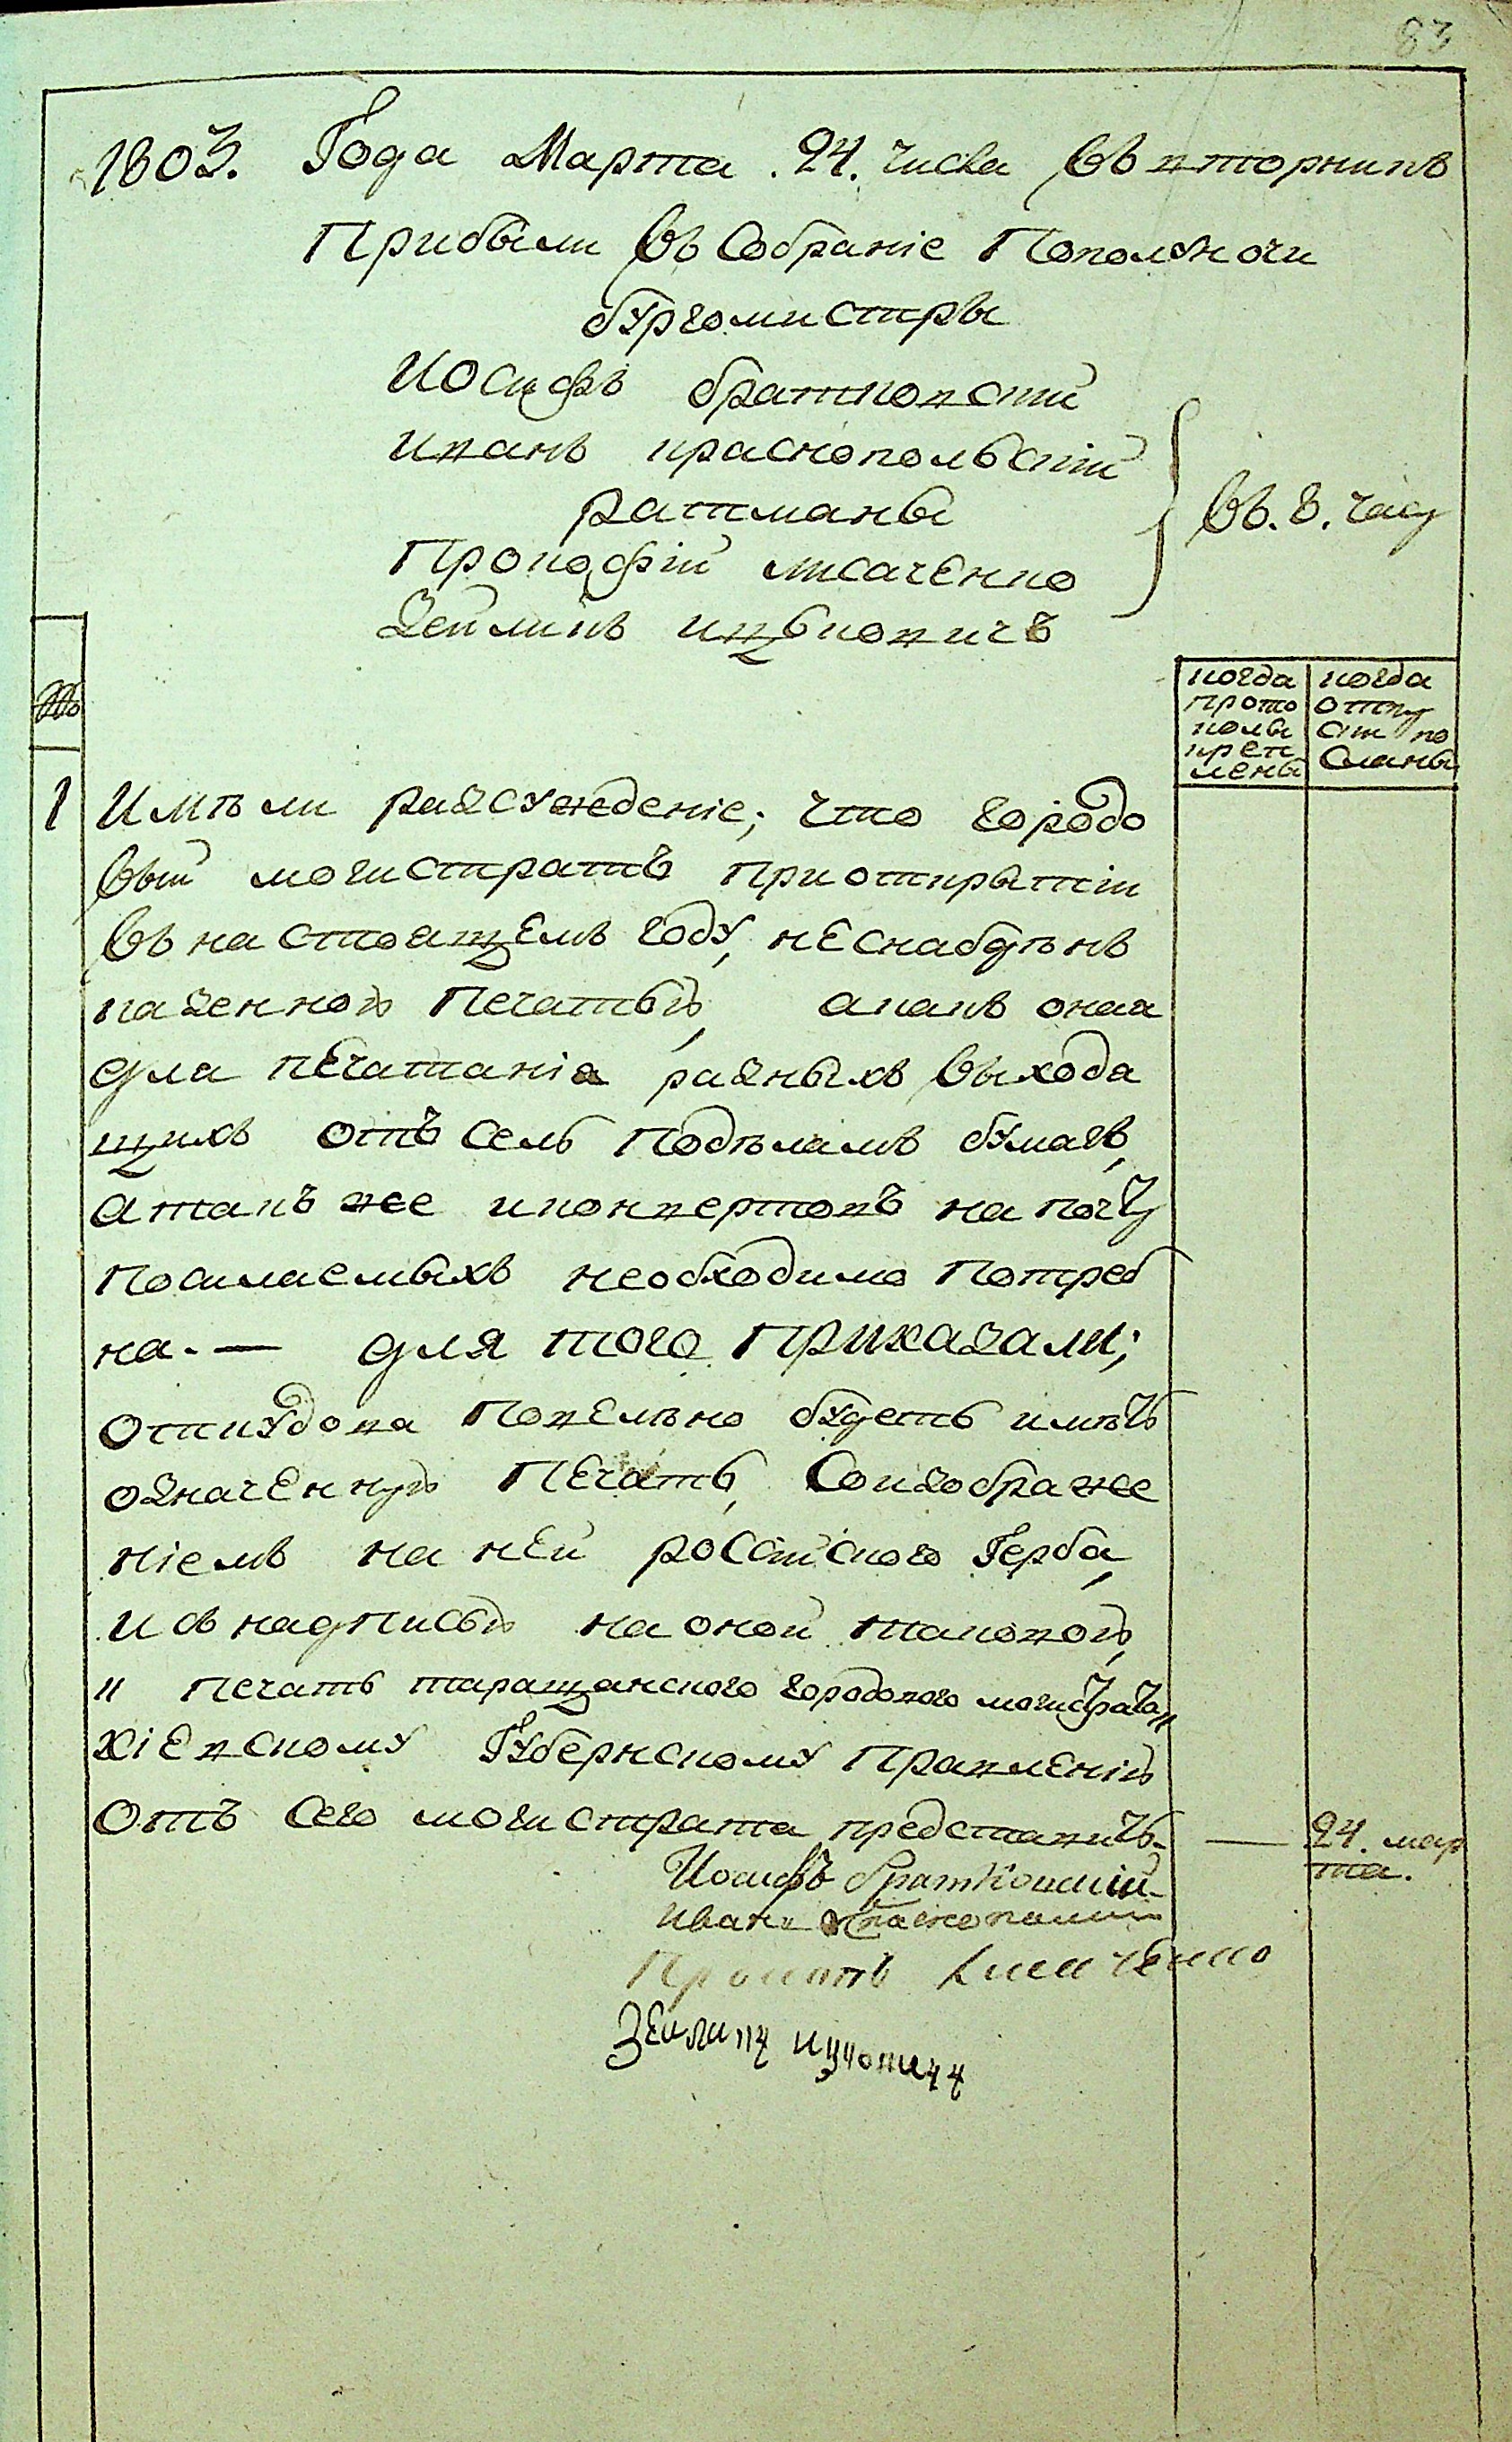 83
1803. Года Марта. 24. числа въ вторникъ
Прибыли въ Собраніе Пополуночи
бургомистры
Иосифъ братковскій
Иванъ краснопольскій
ратманы
Прокофій лисаченко
Зейликъ ицковичъ
въ. 8. часу
№
когда
прото
колы
креп
лены
когда
отпу
ски по
сланы
1
Имѣли разсужденіе; что городо
вый могистратъ приоткрытіи
въ настоящемъ году, неснабдѣнъ
казенною Печатью, акакъ оная
для печатанія разныхъ выходя
щихъ отъ селъ Подѣламъ бумагъ,
атакъ же иконвертовъ на почту
Посилаемыхъ необходимо Потреб
на. — для того Приказали;
откудова Повелѣно будетъ имѣть
означенную Печать, Соизображе
ніемъ на ней россійского Герба,
и съ надписью на оной таковою,
„ Печать таращанского городового могистрата„
Кіевскому Губернскому Правленію
Отъ Сего могистрата представить.
— 24. мар
та.
Иосифъ братковский
Иванъ Краснополский
Прокопъ Лисаченко
Зеиликъ ицковичъ